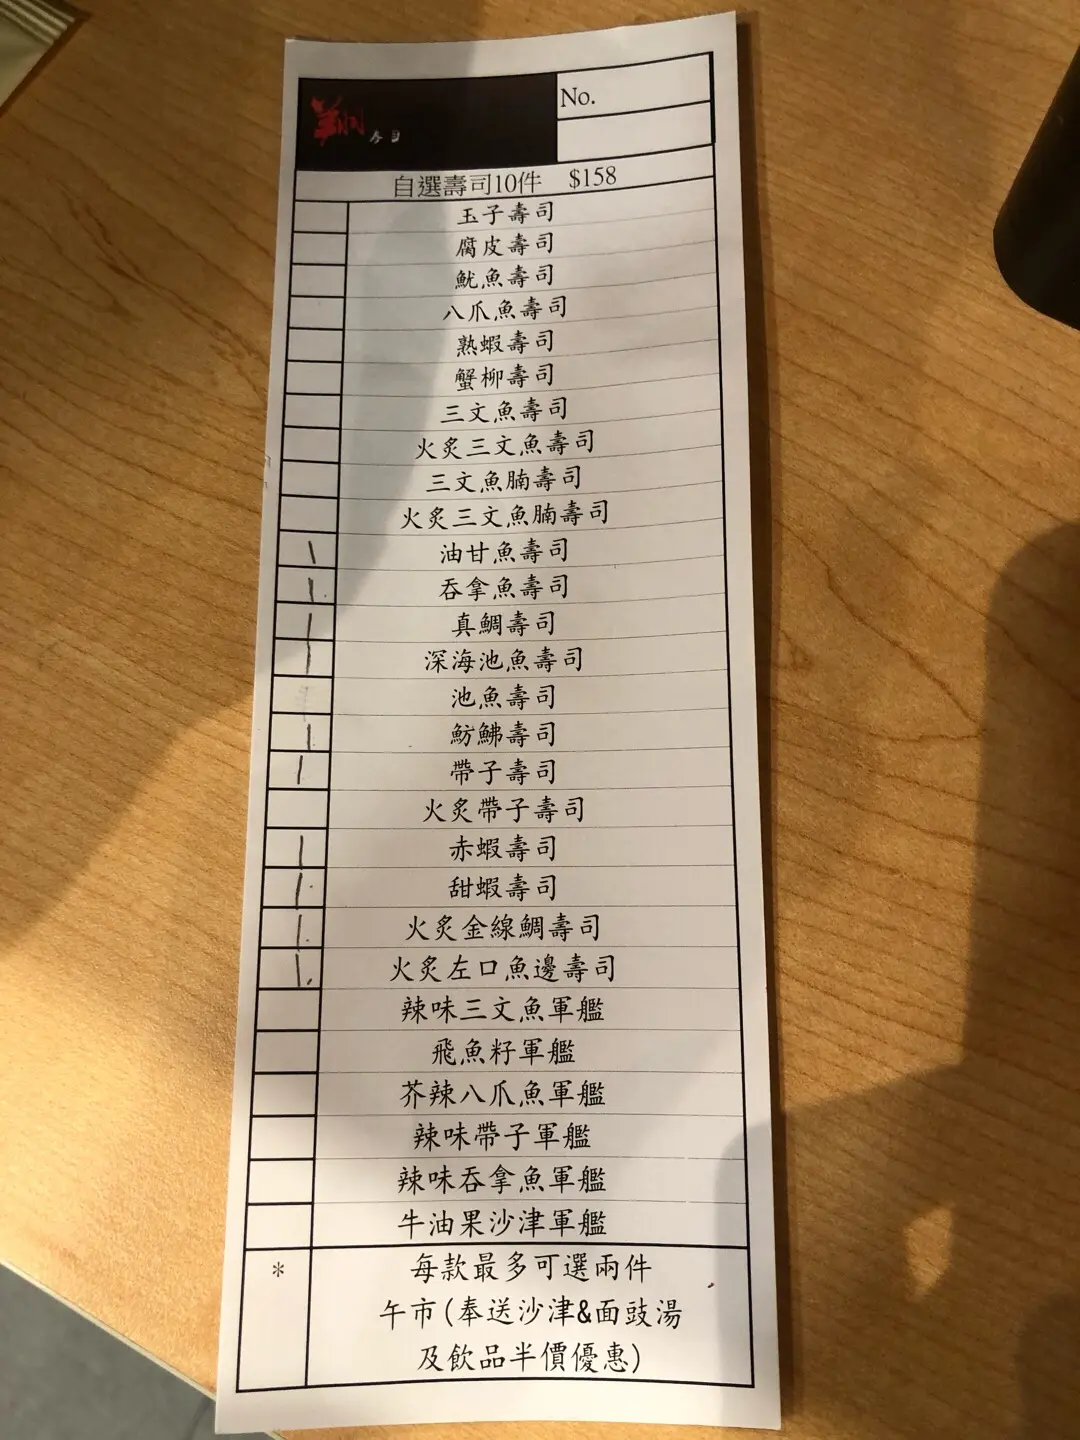 No.
自選壽司10件 $158
玉子壽司
腐皮壽司
魷魚壽司
八爪魚壽司
熟蝦壽司
蟹柳壽司
三文魚壽司
火炙三文魚壽司
三文魚腩壽司
火炙三文魚腩壽司
油甘魚壽司
吞拿魚壽司
真鯛壽司
深海池魚壽司
池魚壽司
魴鮄壽司
帶子壽司
火炙帶子壽司
赤蝦壽司
甜蝦壽司
火炙金線鯛壽司
火炙左口魚邊壽司
辣味三文魚軍艦
飛魚籽軍艦
芥辣八爪魚軍艦
辣味帶子軍艦
辣味吞拿魚軍艦
牛油果沙津軍艦
* 每款最多可選兩件
午市(奉送沙津&面豉湯
及飲品半價優惠)